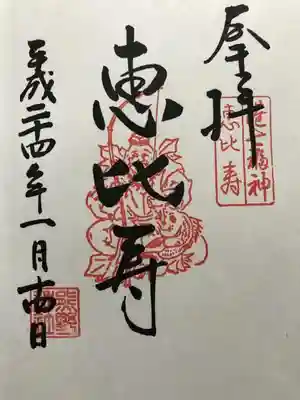 奉拝
港七福神
恵比寿
恵比寿
平成二十四年一月十四日